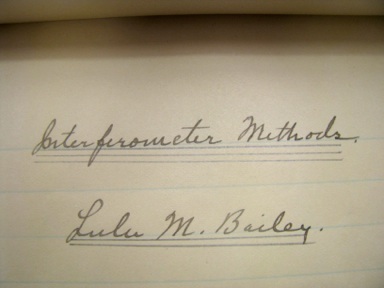 Interferometer Methods.
Lulu M. Bailey.